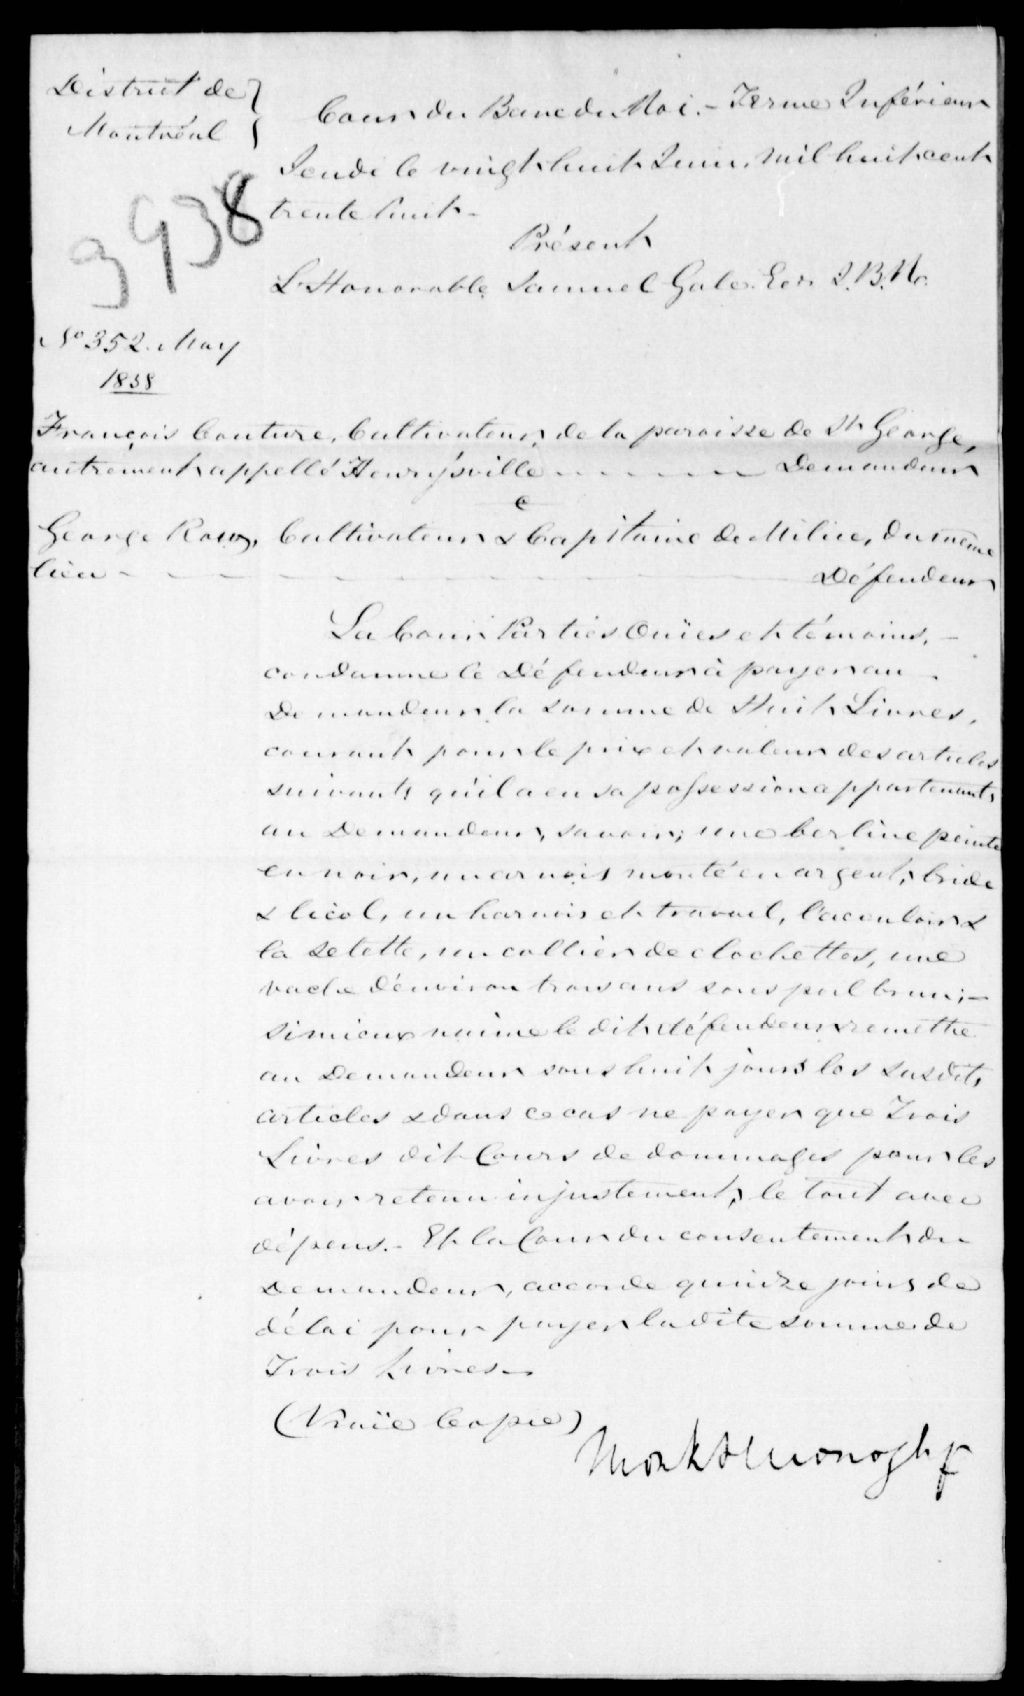 District de }
Montréal }
Cour du Banc du Roi. – Terme Inférieur
Jeudi le vingt huit Juin, mil huit cent
trente huit –
Présent
L'Honorable Samuel Gale Ecr J.B.R.
3938
No 352. May
1838
François Couture, Cultivateur, de la paroisse de St George,
autrement appellé Henrysville – – – – – Demandeur
c
George Rowe, Cultivateur & Capitaine de Milice, du même
lieu – – – – – – – – – – Défendeur
La Cour, Parties Ouïes et témoins, –
condamne le Défendeur à payer au
Demandeur la somme de Huit Livres,
courant pour le prix et valeur des articles
suivants qu'il a en sa possession appartenants
au Demandeur, savoir; une berline peinte
en noir, un arnois monté en argent, bride
& licol, un harnois de travail, l'aculoir &
la selette, un collier de clochettes, une
vache d'environ trois ans sous poil brun; –
si mieux n'aime le dit défendeur remettre
au Demandeur sous huit jours les susdits
articles & dans ce cas ne payer que Trois
Livres dit Cours de dommages pour les
avoir retenu injustement, le tout avec
dépens. – Et la Cour du consentement du
Demandeur, accorde quinze jours de
délai pour payer la dite somme de
Trois Livres –
(Vraie Copie)
Monk &